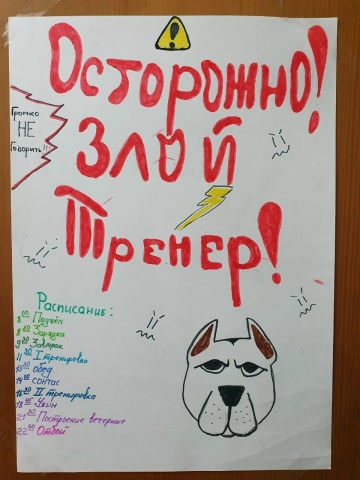 Осторожно!
Злой
Тренер!
Громко
НЕ
Говорить!!!
Расписание:
8 00 Подъём
8 30 Зарядка
9 00 Завтрак
11 00 I тренировка
13 00 обед
14 00 сончас
16 00 II тренировка
18 00 Ужин
21 30 Построение вечернее
22 00 Отбой